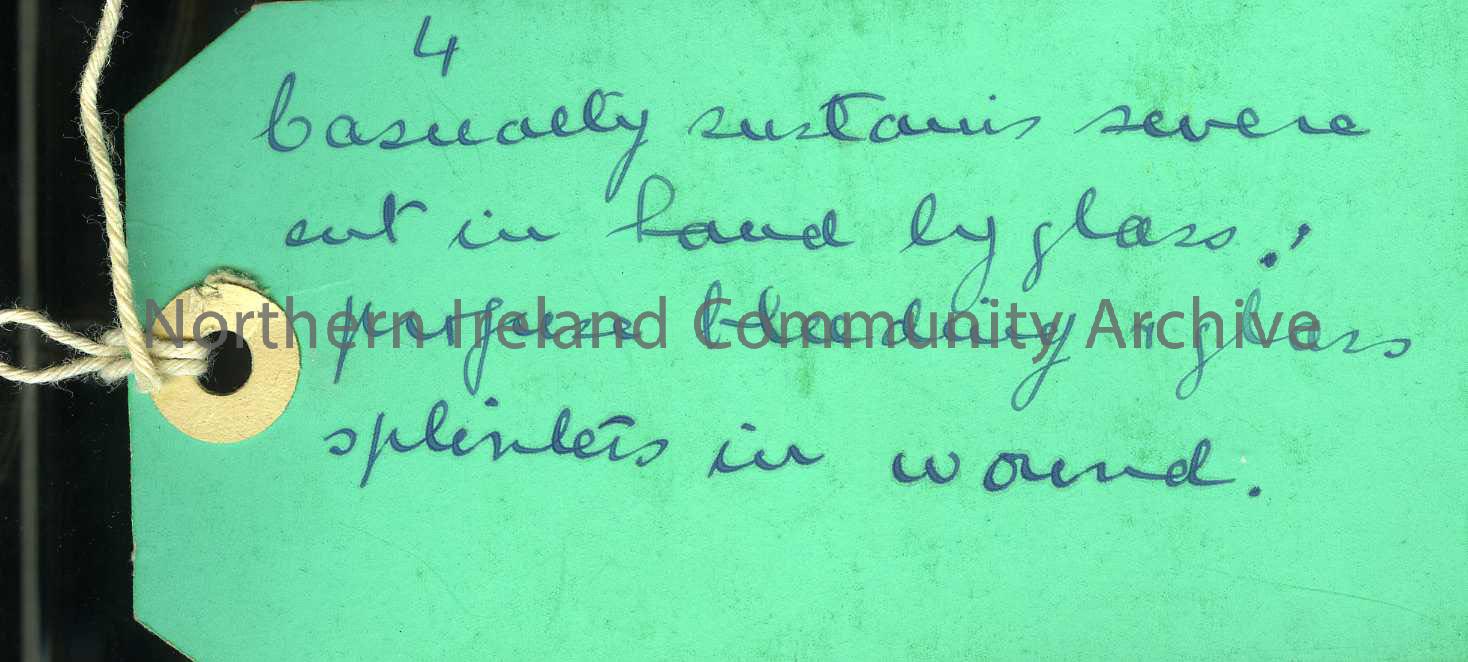 4
Casualty sustains severe
cut in hand by glass;
profuse bleeding & glass
Northern Ireland Community Archive
splinters in wound.